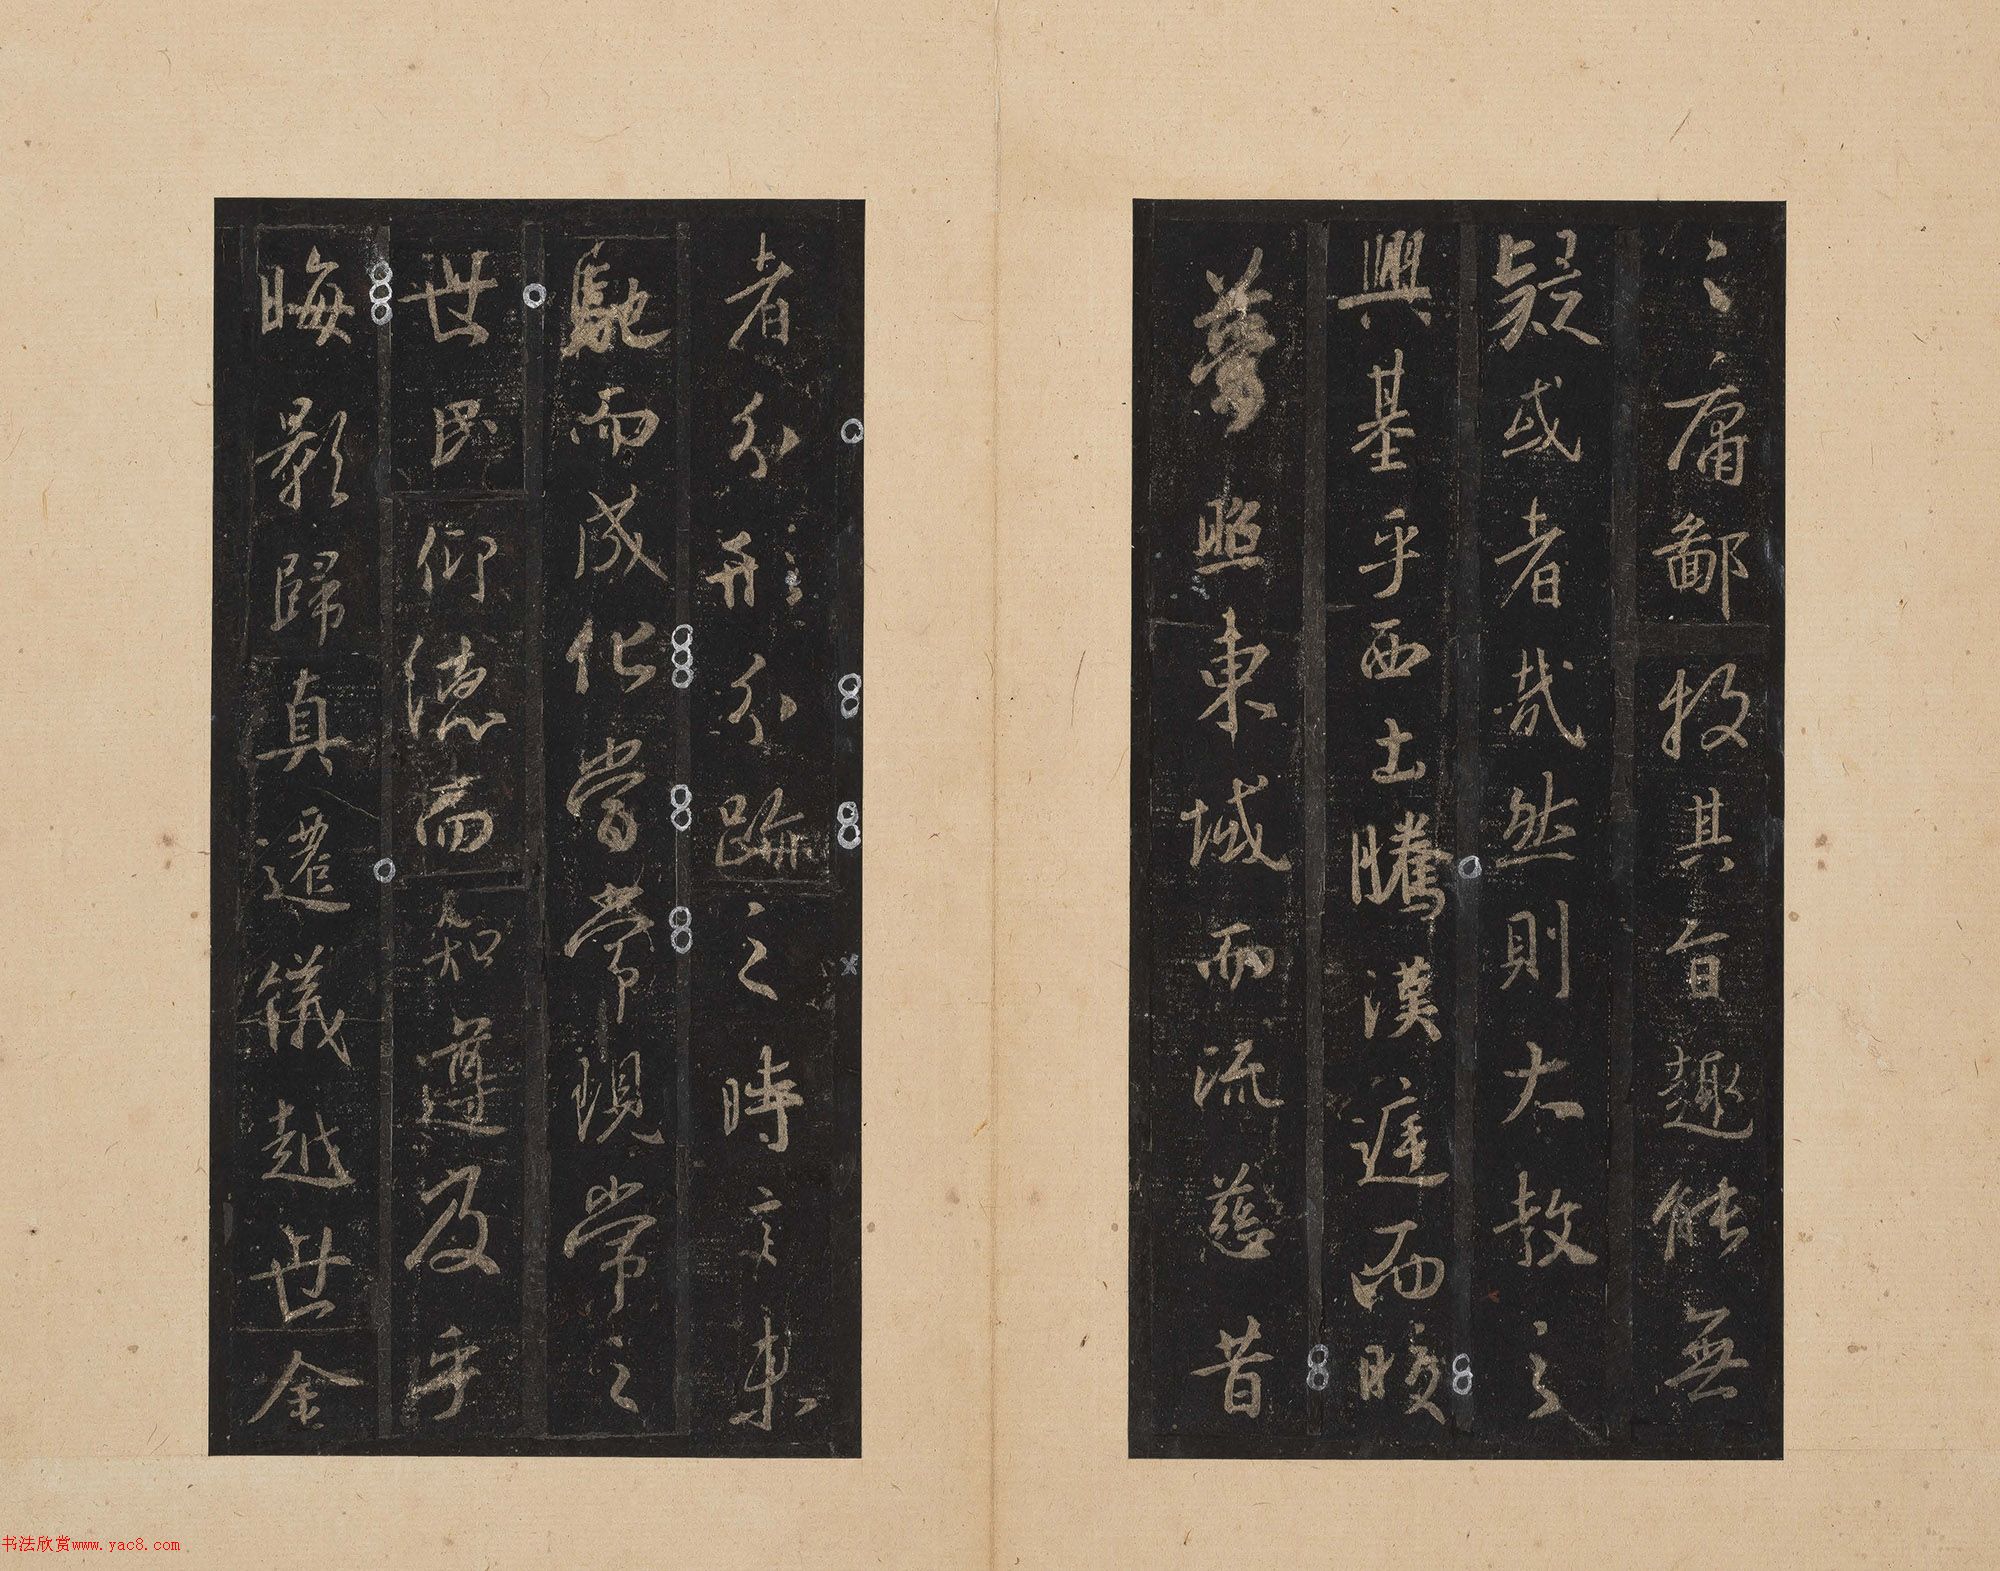 〻庸鄙投其旨趣能無
疑或者哉然則大教之
興基乎西土騰漢庭而皎
夢照東域而流慈昔
者分形分跡之時言未
馳而成化當常現常之
世民仰德而知遵及乎
晦影歸真遷儀越世金
书法欣赏www.yac8.com